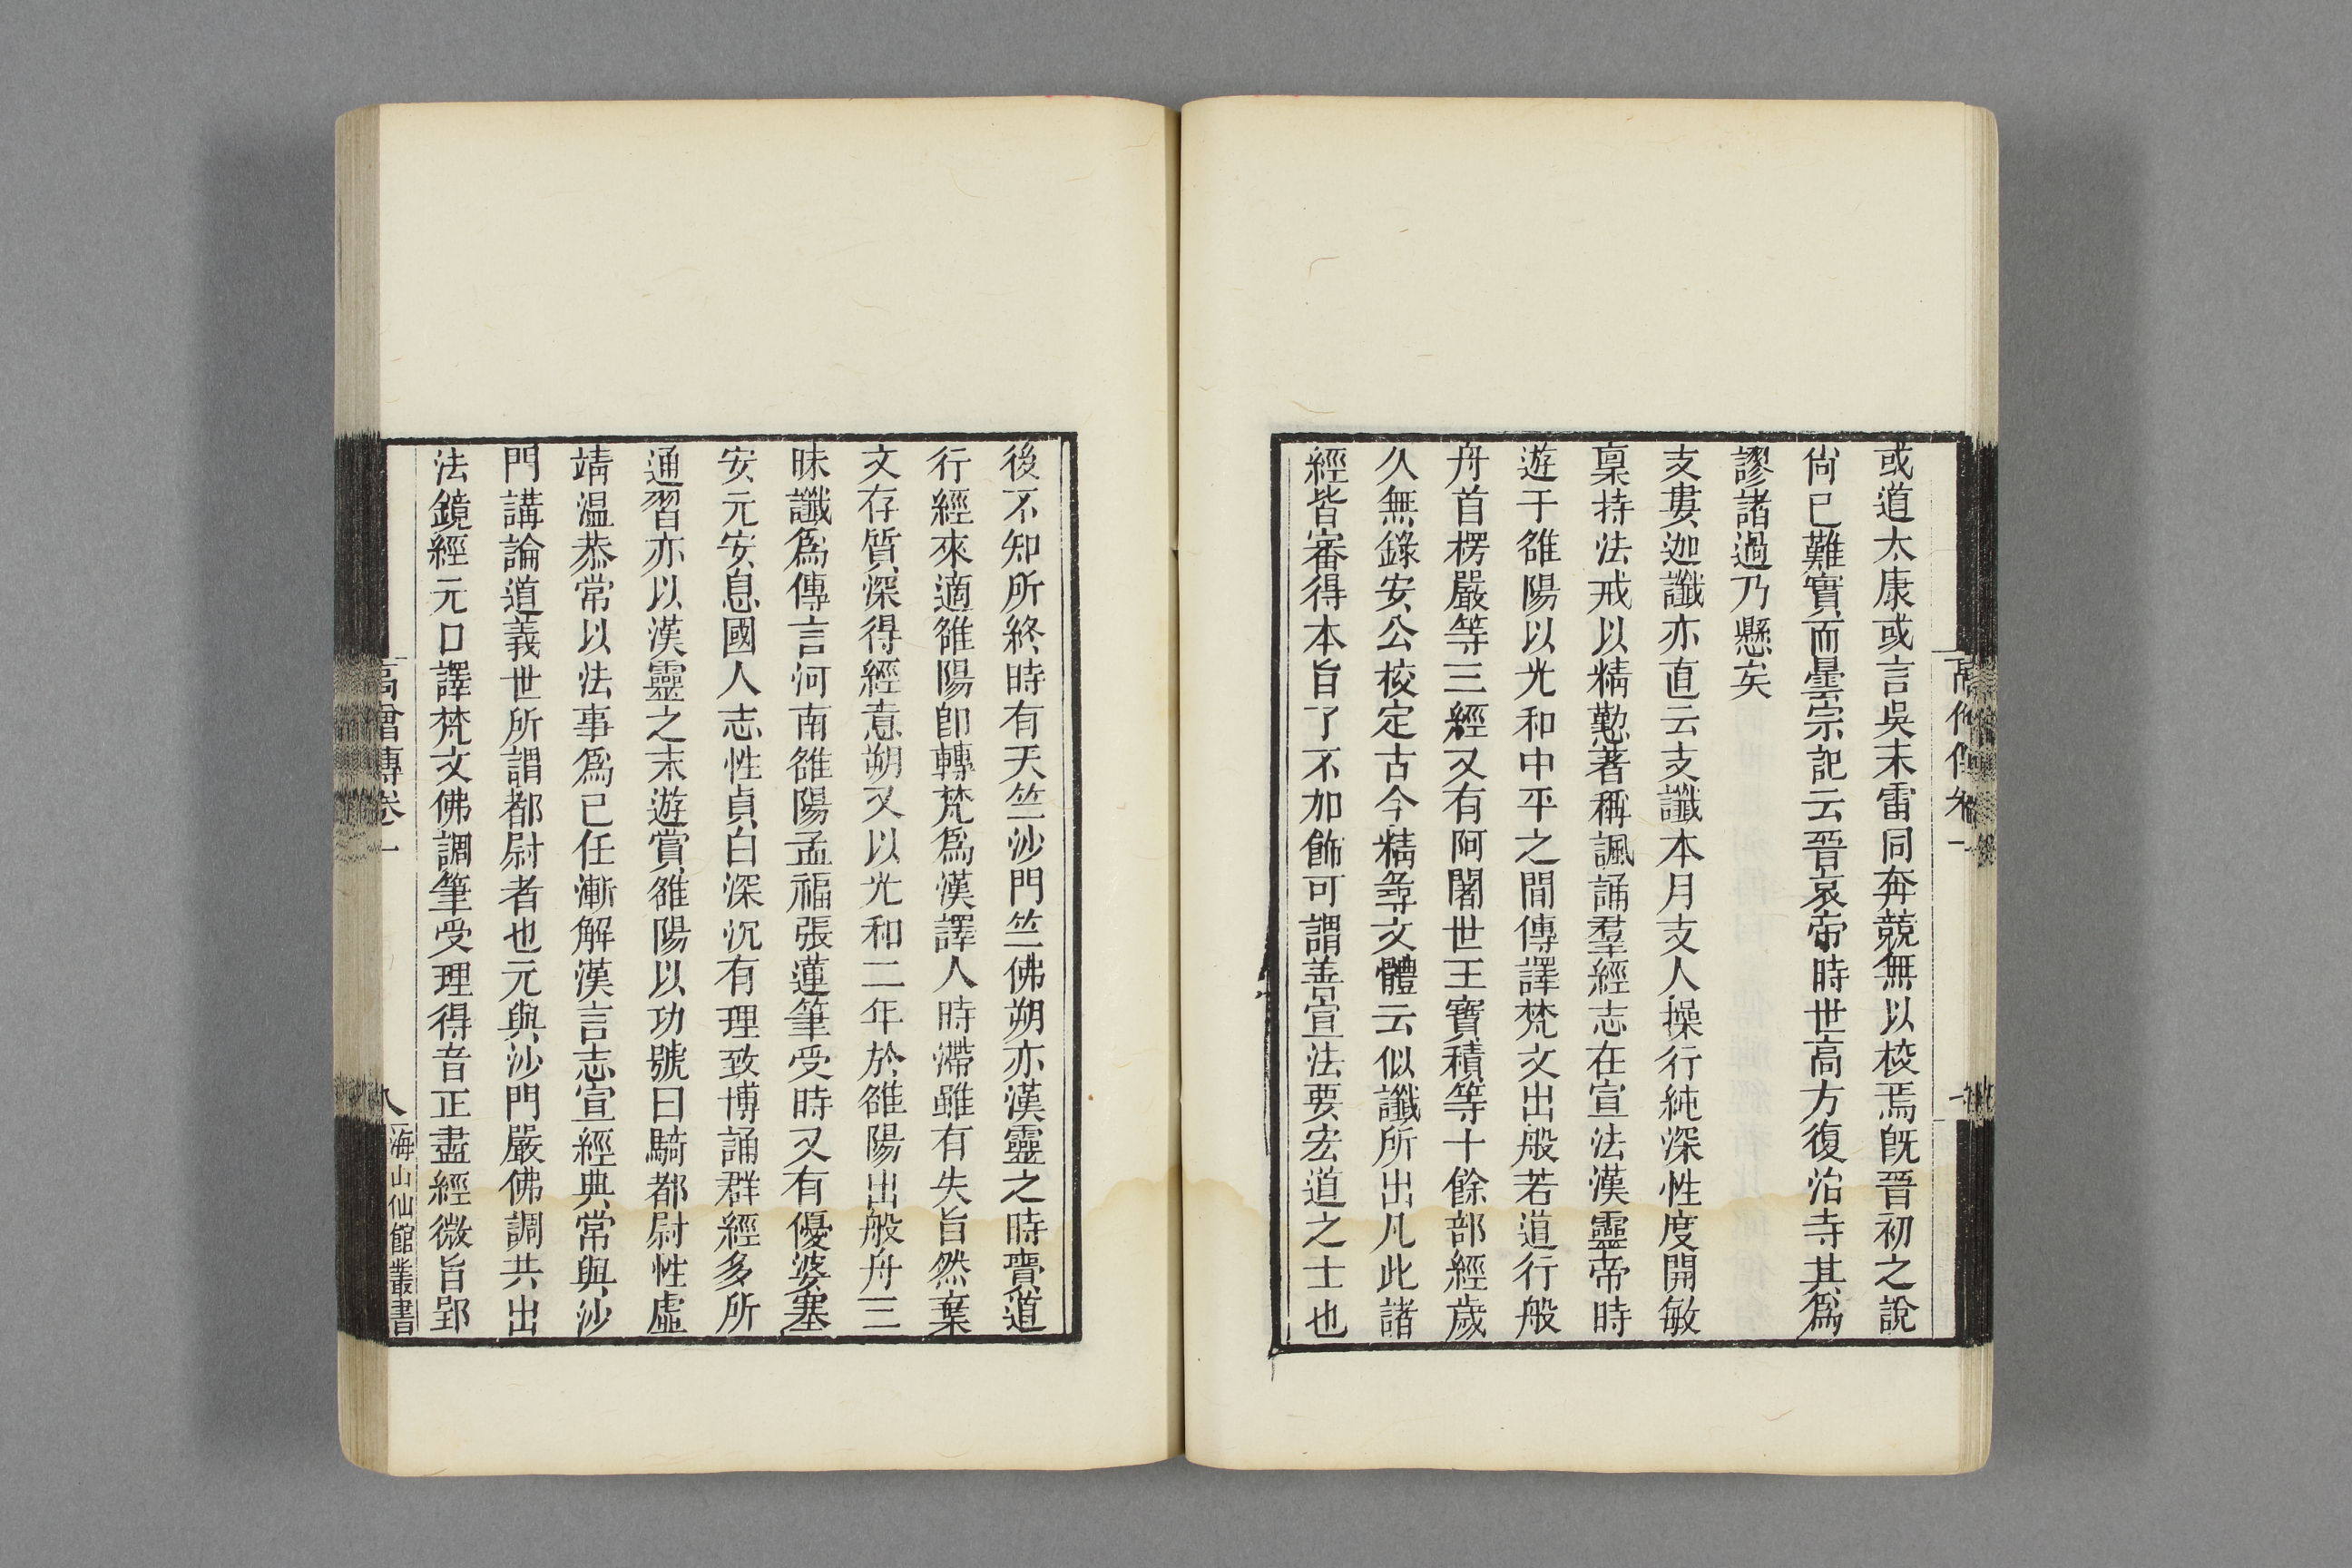 或道太康或言吳末雷同奔競無以校焉旣晉初之說
尙已難實而曇宗記云晉哀帝時世高方復治寺其爲
謬諸過乃懸矣
支婁迦讖亦直云支讖本月支人操行純深性度開敏
稟持法戒以精懃著稱諷誦羣經志在宣法漢靈帝時
遊于雒陽以光和中平之間傳譯梵文出般若道行般
舟首楞嚴等三經又有阿闍世王寶積等十餘部經歲
久無錄安公校定古今精尋文體云似讖所出凡此諸
經皆審得本旨了不加飾可謂善宣法要宏道之士也
後不知所終時有天竺沙門竺佛朔亦漢靈之時齎道
行經來適雒陽卽轉梵爲漢譯人時滯雖有失旨然棄
文存質深得經意朔又以光和二年於雒陽出般舟三
昧讖爲傳言河南雒陽孟福張蓮筆受時又有優婆塞
安元安息國人志性貞白深沉有理致博誦群經多所
通習亦以漢靈之末遊賞雒陽以功號曰騎都尉性虛
靖溫恭常以法事爲已任漸解漢言志宣經典常與沙
門講論道義世所謂都尉者也元與沙門嚴佛調共出
法鏡經元口譯梵文佛調筆受理得音正盡經微旨郢
高僧傳卷一
八
海山仙館叢書